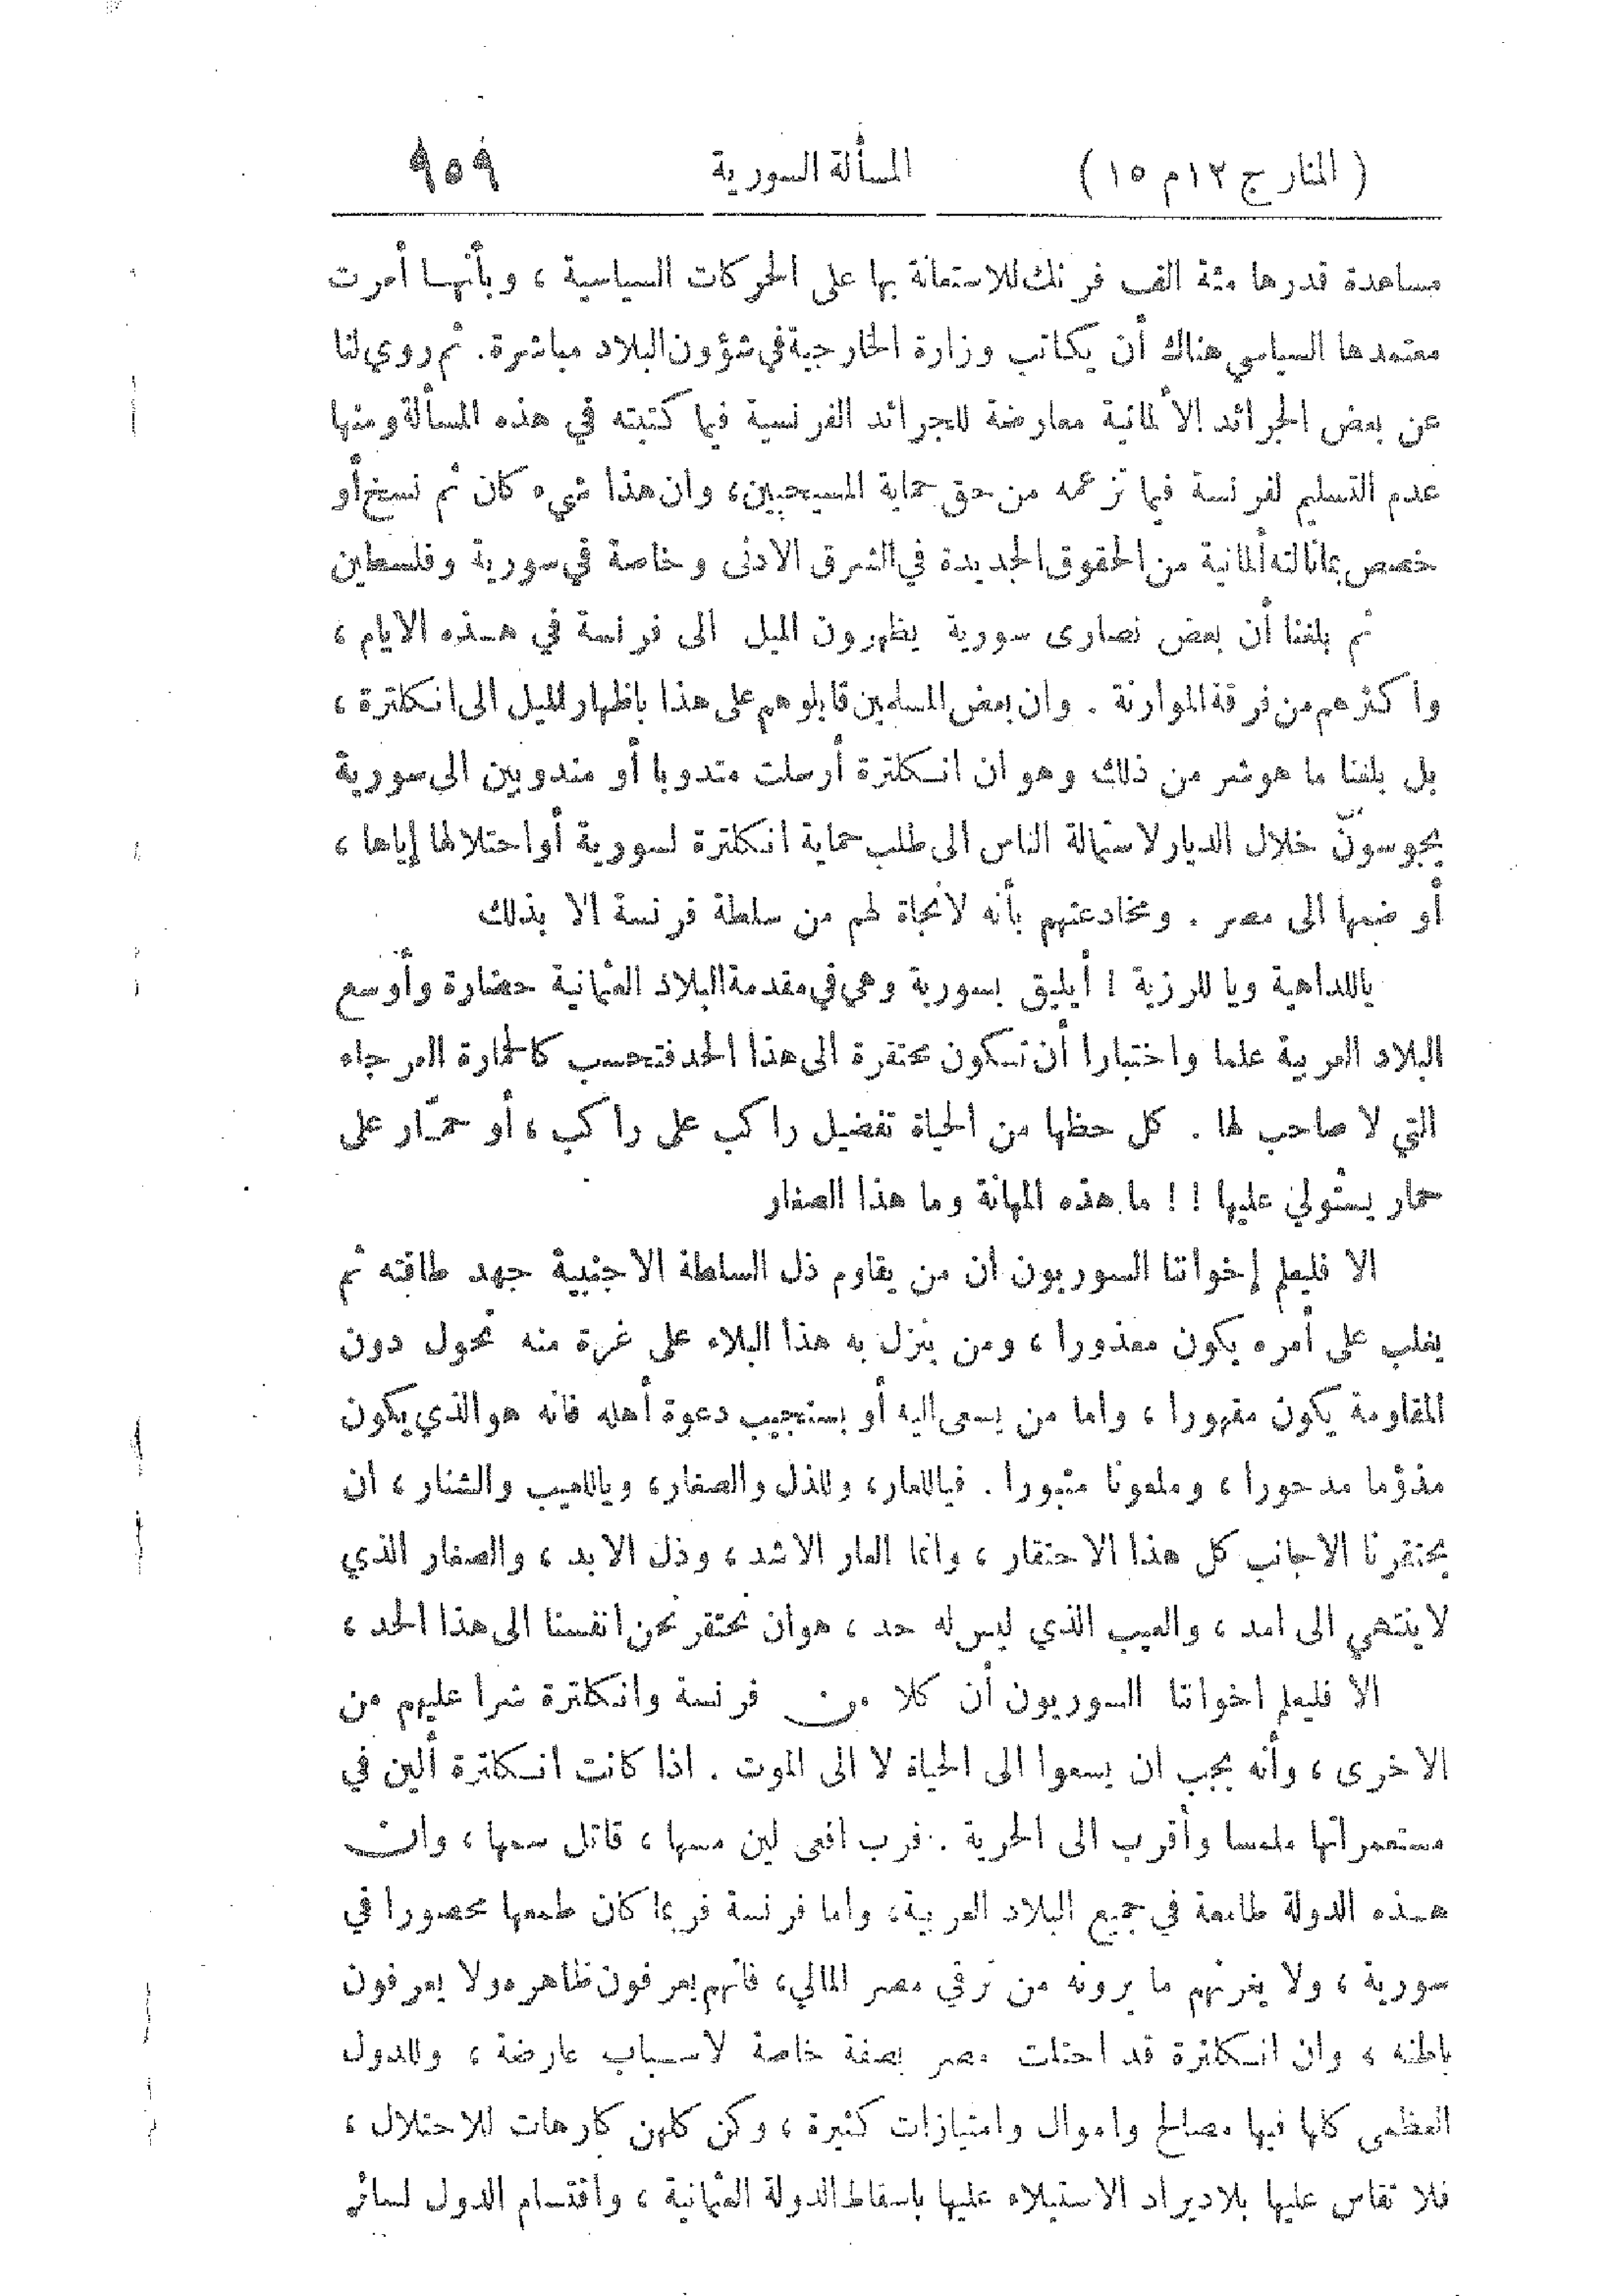 ( المنار ج ١٢ م ١٥ ) المسألة السورية ٩٥٩
مساعدة قدرها مئة الف فرنك للاستعانة بها على الحركات السياسية ، وبأنها أمرت
معتمدها السياسي هناك أن يكاتب وزارة الخارجية في شؤون البلاد مباشرة. ثم روي لنا
عن بعض الجرائد الألمانية معارضة للجرائد الفرنسية فيما كتبته في هذه المسألة ومنها
عدم التسليم لفرنسة فيما تزعمه من حق حماية المسيحيين، وان هذا شيء كان ثم نسخ أو
خصص بما نالته ألمانية من الحقوق الجديدة في الشرق الادنى وخاصة في سورية وفلسطين
ثم بلغنا أن بعض نصارى سورية يظهرون الميل الى فرنسة في هذه الايام ،
وأكثرهم من فرقة الموارنة . وان بعض المسلمين قابلوهم على هذا باظهار الميل الى انكلترة ،
بل بلغنا ما هو شر من ذلك وهو ان انكلترة أرسلت مندوبا أو مندوبين الى سورية
يجوسون خلال الديار لاستمالة الناس الى طلب حماية انكلترة لسورية أو احتلالها إياها ،
أو ضمها الى مصر . ومخادعتهم بأنه لا نجاة لهم من سلطة فرنسة الا بذلك
ياللداهية ويا للرزية ! أيليق بسورية وهي في مقدمة البلاد العثمانية حضارة وأوسع
البلاد العربية علما واختبارا أن تكون محتقرة الى هذا الحد فتحسب كالحمارة العرجاء
التي لا صاحب لها . كل حظها من الحياة تفضيل راكب على راكب ، أو حمّار على
حمار يستولي عليها ! ! ما هذه المهانة وما هذا الصغار
الا فليعلم إخواننا السوريون أن من يقاوم ذل السلطة الاجنبية جهد طاقته ثم
يغلب على أمره يكون معذورا ، ومن ينزل به هذا البلاء على غرة منه تحول دون
المقاومة يكون مقهورا ، واما من يسعى اليه أو يستجيب دعوة أهله فانه هو الذي يكون
مذؤما مدحورا ، وملعونا مثبورا . فياللعار، وللذل والصغار، وياللعيب والشنار ، أن
يحتقرنا الاجانب كل هذا الاحتقار ، وانما العار الاشد ، وذل الابد ، والصغار الذي
لا ينتهي الى امد ، والعيب الذي ليس له حد ، هو ان نحتقر نحن انفسنا الى هذا الحد ،
الا فليعلم اخواننا السوريون أن كلا من فرنسة وانكلترة شرا عليهم من
الاخرى ، وأنه يجب ان يسعوا الى الحياة لا الى الموت . اذا كانت انكلترة ألين في
مستعمراتها ملمسا وأقرب الى الحرية . فرب افعى لين مسها ، قاتل سمها ، وان
هذه الدولة طامعة في جميع البلاد العربية، واما فرنسة فربما كان طمعها محصورا في
سورية ، ولا يغرنهم ما يرونه من ترقي مصر المالي، فانهم يعرفون ظاهره ولا يعرفون
باطنه ، وان انكلترة قد احتلت مصر بصفة خاصة لاسباب عارضة ، وللدول
العظمى كلها فيها مصالح واموال وامتيازات كثيرة ، وكن كلهن كارهات للاحتلال ،
فلا تقاس عليها بلاد يراد الاستيلاء عليها باسقاط الدولة العثمانية ، واقتسام الدول لسائر